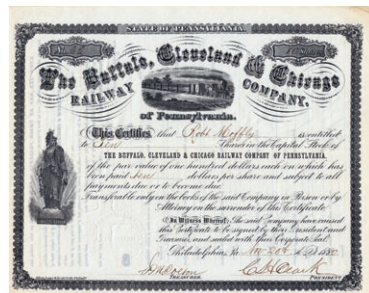 STATE OF PENNSYLVANIA.
The Buffalo, Cleveland & Chicago
RAILWAY COMPANY,
of Pennsylvania.
This Certifies that Robt Moffly is entitled
to Ten Shares in the Capital Stock of
THE BUFFALO, CLEVELAND & CHICAGO RAILWAY COMPANY OF PENNSYLVANIA.
of the par value of one hundred dollars each on which has
been paid ten dollars per share and subject to all
payments due or to become due.
Transferable only on the books of the said Company in Person or by
Attorney on the surrender of this Certificate.
In Witness Whereof, The said Company have caused
this Certificate to be signed by their President and
Treasurer, and sealed with their Corporate Seal.
Philadelphia, Pa. Nov 20th A.D. 18
TREASURER. PRESIDENT.